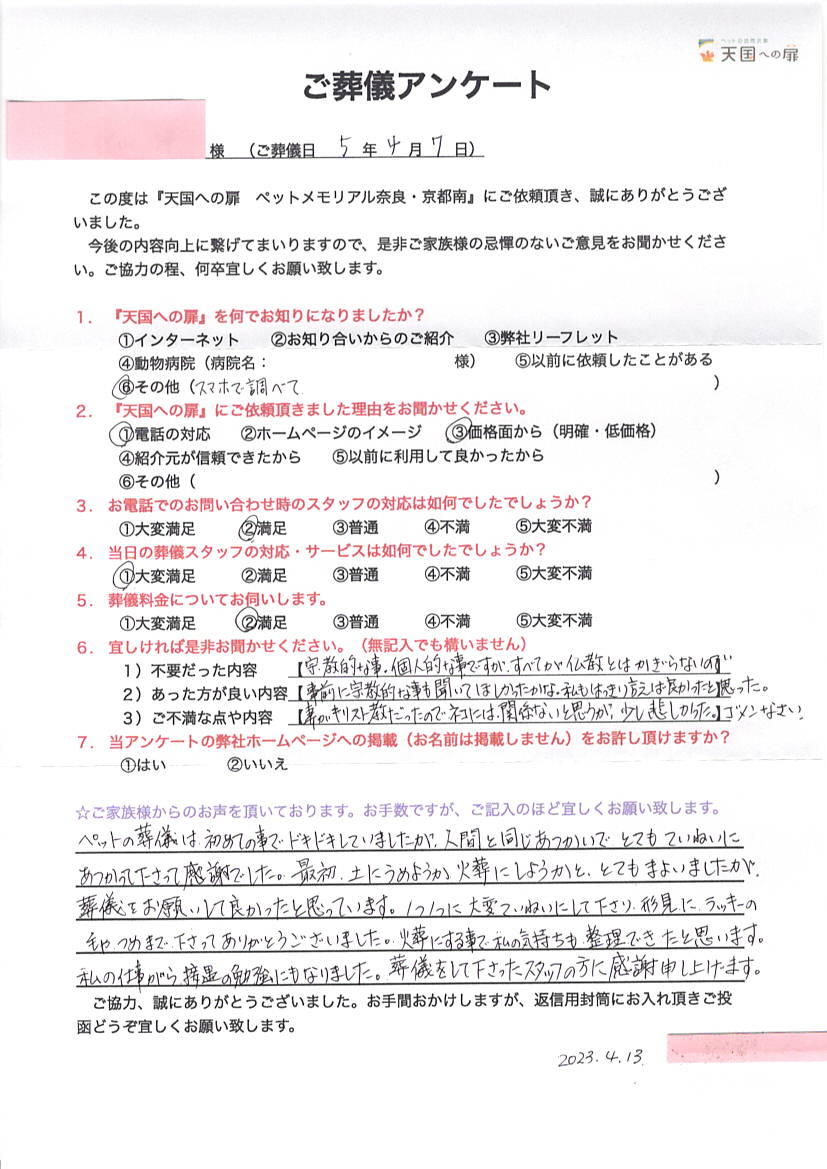 ペットの訪問火葬
天国への扉
ご葬儀アンケート
様 （ご葬儀日 5 年 4 月 7 日）
この度は『天国への扉　ペットメモリアル奈良・京都南』にご依頼頂き、誠にありがとうござ
いました。
今後の内容向上に繋げてまいりますので、是非ご家族様の忌憚のないご意見をお聞かせくださ
い。ご協力の程、何卒宜しくお願い致します。
1．『天国への扉』を何でお知りになりましたか？
①インターネット ②お知り合いからのご紹介 ③弊社リーフレット
④動物病院（病院名： 様） ⑤以前に依頼したことがある
⑥その他（スマホで調べて ）
2．『天国への扉』にご依頼頂きました理由をお聞かせください。
①電話の対応 ②ホームページのイメージ ③価格面から（明確・低価格）
④紹介元が信頼できたから ⑤以前に利用して良かったから
⑥その他（ ）
3．お電話でのお問い合わせ時のスタッフの対応は如何でしたでしょうか？
①大変満足 ②満足 ③普通 ④不満 ⑤大変不満
4．当日の葬儀スタッフの対応・サービスは如何でしたでしょうか？
①大変満足 ②満足 ③普通 ④不満 ⑤大変不満
5．葬儀料金についてお伺いします。
①大変満足 ②満足 ③普通 ④不満 ⑤大変不満
6．宜しければ是非お聞かせください。（無記入でも構いません）
1）不要だった内容 【宗教的な事。個人的な事ですが、すべてが仏教とはかぎらないので
2）あった方が良い内容【事前に宗教的な事も聞いてほしかったかな。私もはっきり言えば良かったと】思った。
3）ご不満な点や内容 【妻がキリスト教だったのでネコには、関係ないと思うが、少し悲しかった。】ゴメンなさい！
7．当アンケートの弊社ホームページへの掲載（お名前は掲載しません）をお許し頂けますか？
①はい ②いいえ
☆ご家族様からのお声を頂いております。お手数ですが、ご記入のほど宜しくお願い致します。
ペットの葬儀は、初めての事でドキドキしていましたが、人間と同じあつかいで とてもていねいに
あつかって下さって感謝でした。最初、土にうめようか、火葬にしようかと、とてもまよいましたが、
葬儀をお願いして良かったと思っています。1つ1つに大変ていねいにして下さり、形見に、ラッキーの
毛や、つめまで、下さってありがとうございました。火葬にする事で私の気持ちも、整理できたと思います。
私の仕事がら、接遇の勉強にもなりました。葬儀をして下さったスタッフの方に感謝申し上げます。
ご協力、誠にありがとうございました。お手間おかけしますが、返信用封筒にお入れ頂きご投
函どうぞ宜しくお願い致します。
2023.4.13